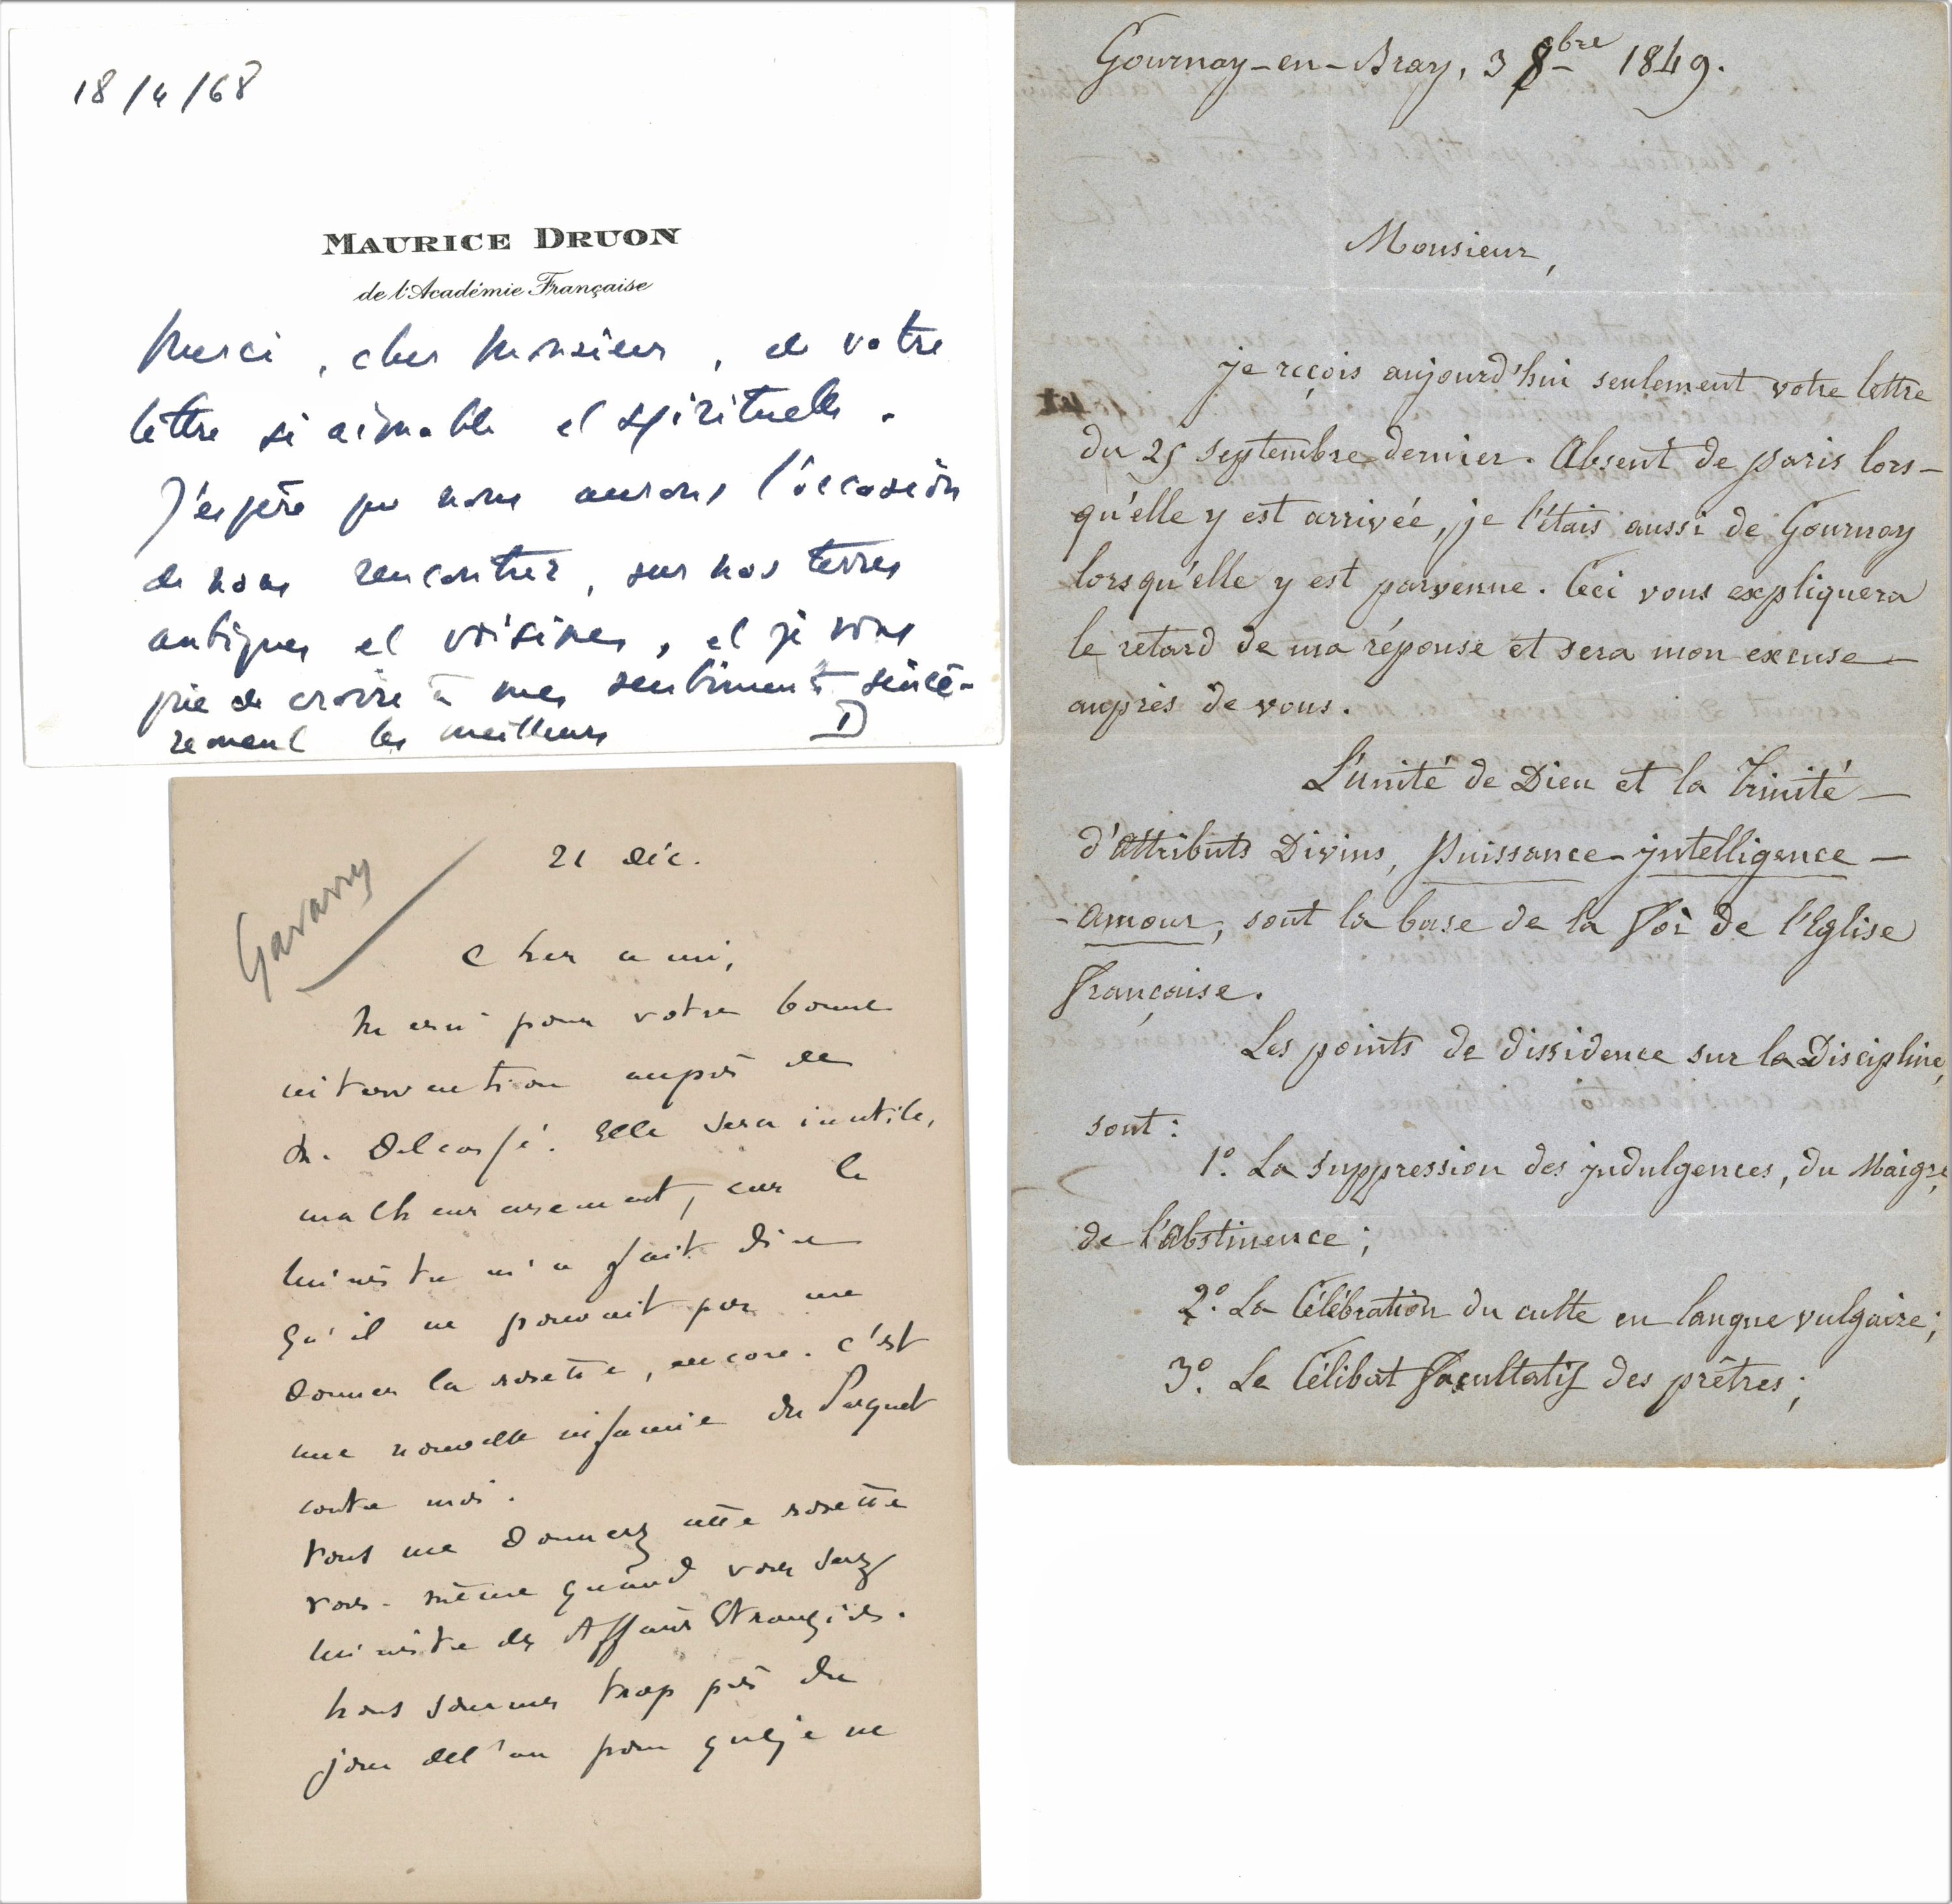 18/4/68
MAURICE DRUON
de l'Académie Française
Merci, cher Monsieur, de votre
lettre si aimable et spirituelle.
J'espère que nous aurons l'occasion
de nous rencontrer, sur nos terres
antiques et voisines, et je vous
prie de croire à mes sentiments sincè-
rement les meilleurs
D
Gavarry
21 Déc.
Cher ami,
Merci pour votre bonne
intervention auprès de
M. Delcassé. Elle sera inutile,
malheureusement, car le
Ministre m'a fait dire
qu'il ne pouvait pas me
donner la rosette, encore. C'est
une nouvelle infamie du Parquet
contre moi.
Vous me donnerez cette rosette
vous-même quand vous serez
Ministre des Affaires Etrangères.
Nous sommes trop près du
jour de l'an pour que je ne
Gournay-en-Bray, 3 8bre 1849.
Monsieur,
je reçois aujourd'hui seulement votre lettre
du 25 septembre dernier. Absent de paris lors-
qu'elle y est arrivée, je l'étais aussi de Gournay
lorsqu'elle y est parvenue. Ceci vous expliquera
le retard de ma réponse et sera mon excuse
auprès de vous.
L'unité de Dieu et la Trinité
d'attributs Divins, puissance-jntelligence-
-amour, sont la base de la Foi de l'Eglise
française.
Les points de dissidence sur la Discipline,
sont:
1º. La suppression des jndulgences, du Maigre,
de l'abstinence;
2º. La Célébration du culte en langue vulgaire;
3º. Le Célibat Facultatif des prêtres;